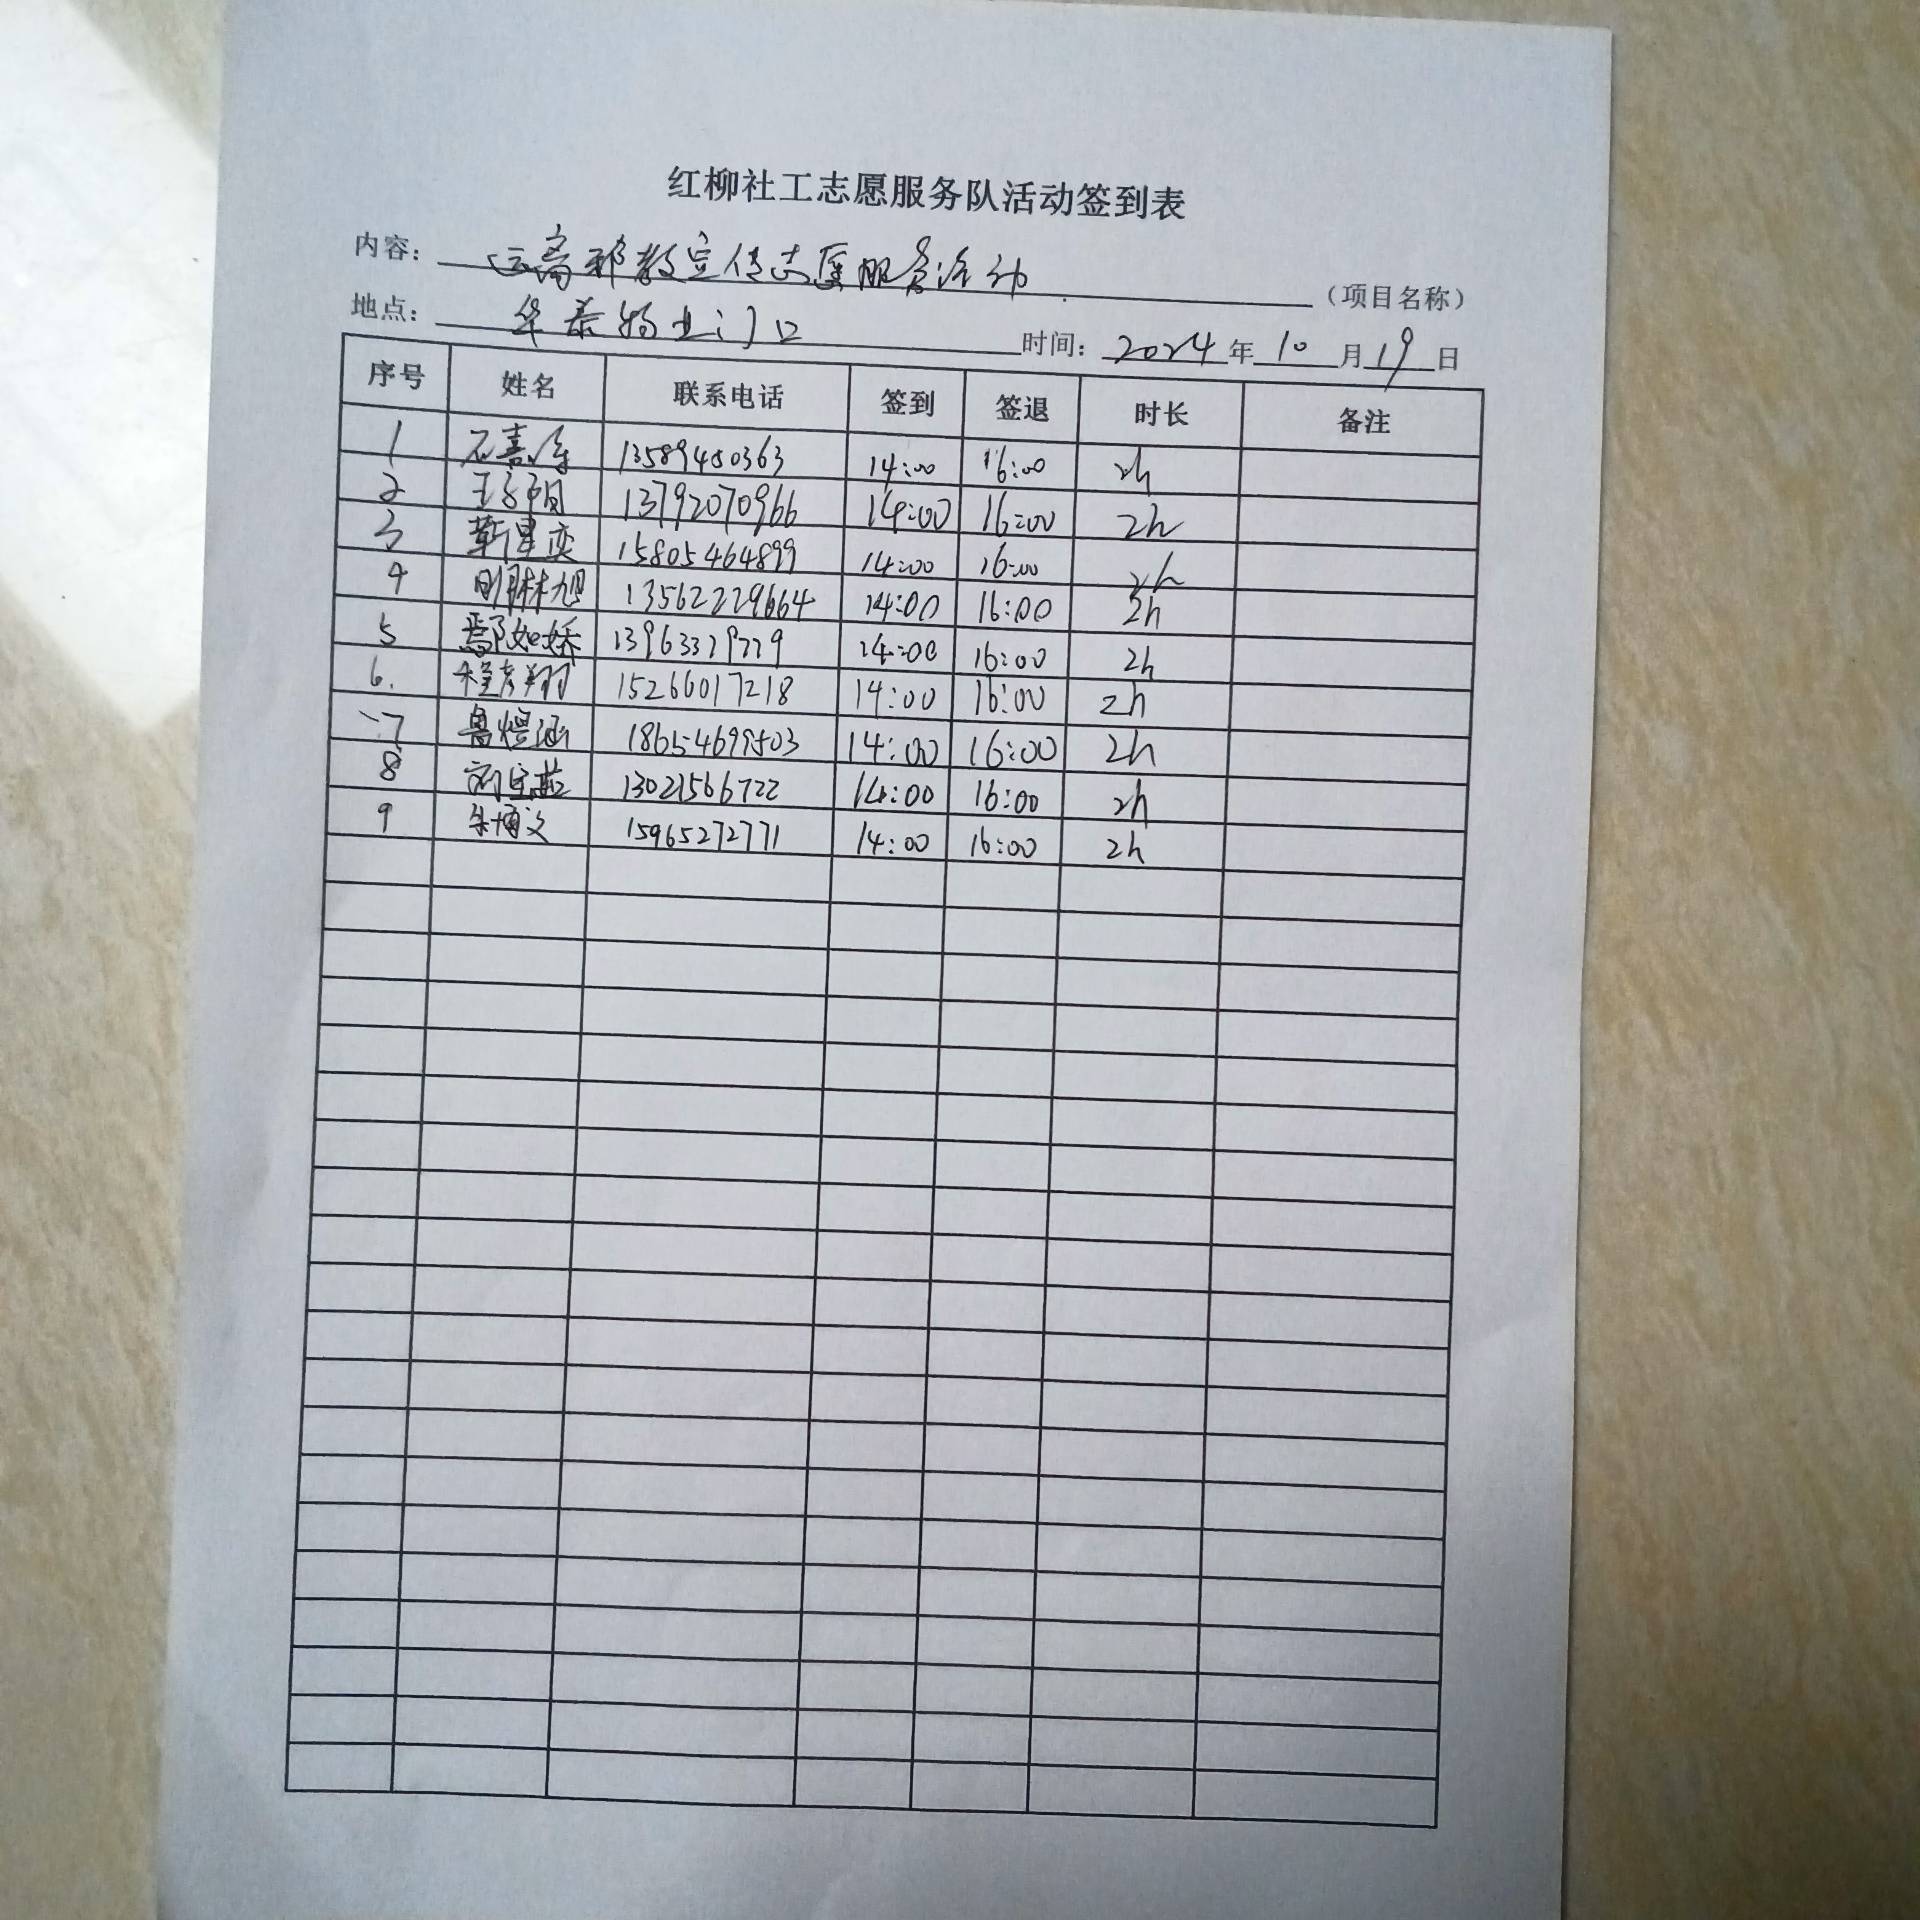 红柳社工志愿服务队活动签到表
内容： 远离邪教宣传志愿服务活动 （项目名称）
地点： 华泰物业门口 时间：2024年10月19日
序号 姓名 联系电话 签到 签退 时长 备注
1 石嘉 13589480363 14:00 16:00 2h
2 王子 13792070966 14:00 16:00 2h
3 靳星奕 15805464899 14:00 16:00 2h
4 明林旭 13562229664 14:00 16:00 2h
5 鄢如娇 14:00 16:00 2h
6. 程彦翔 15266017218 14:00 16:00 2h
7 鲁煜涵 14:00 16:00 2h
8 刘宝 13021566722 14:00 16:00 2h
9 朱博文 15965272771 14:00 16:00 2h